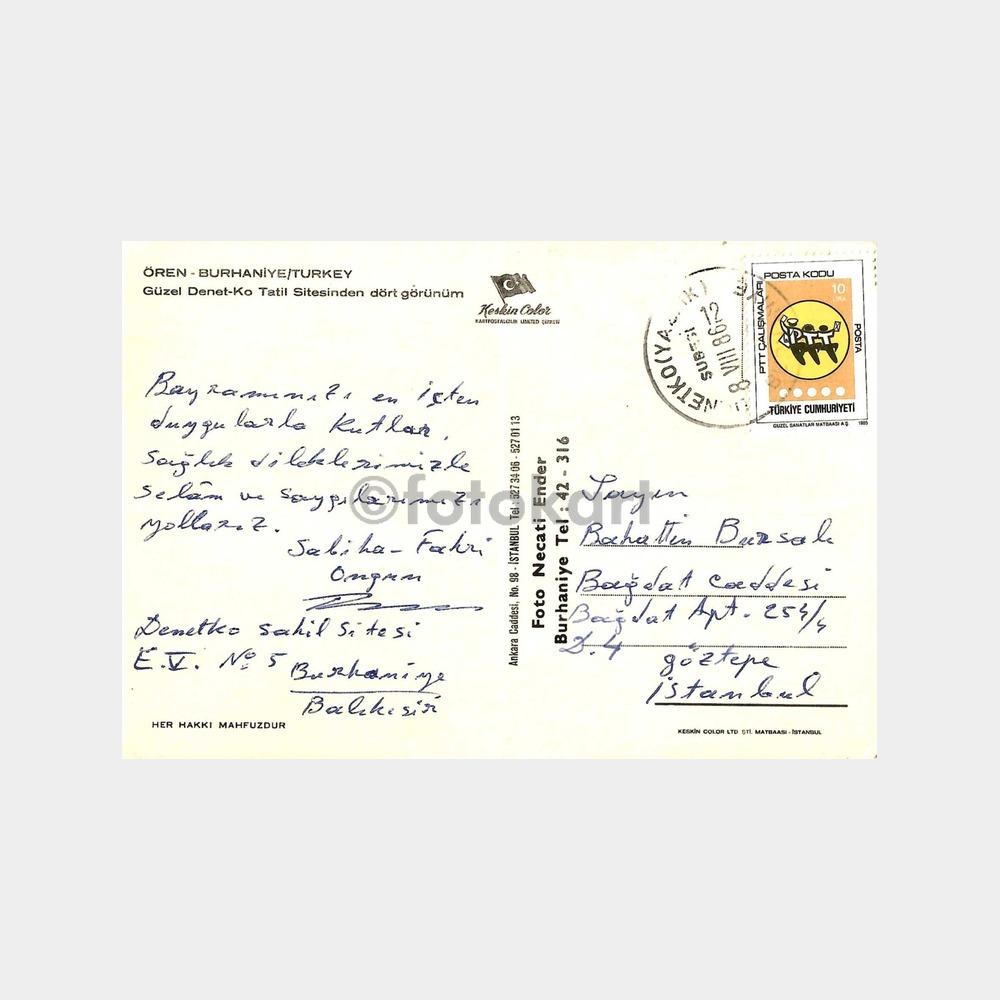 ÖREN - BURHANİYE/TURKEY
Güzel Denet-Ko Tatil Sitesinden dört görünüm
Keskin Color
KARTPOSTALCILIK LIMITED ŞİRKETİ
Bayramınızı en içten
duygularla kutlar,
sağlık dileklerimizle
selâm ve saygılarımızı
yollarız.
Sabiha - Fahri
Ongun
Denetko Sahil Sitesi
E.V. No 5
Burhaniye
Balıkesir
HER HAKKI MAHFUZDUR
Ankara Caddesi, No. 98 - İSTANBUL Tel: 527 34 06 - 527 01 13
Foto Necati Ender
Burhaniye Tel : 42 - 316
POSTA KODU
PTT ÇALIŞMALARI
10
LİRA
PTT
POSTA
TÜRKİYE CUMHURİYETİ
GÜZEL SANATLAR MATBAASI A.Ş. 1985
ŞUBESİ
8 VIII 86 12
Sayın
Bahattin Bursalı
Bağdat Caddesi
Bağdat Apt. 254/4
D.4
Göztepe
İstanbul
KESKİN COLOR LTD ŞTİ. MATBAASI - İSTANBUL
©fotokart